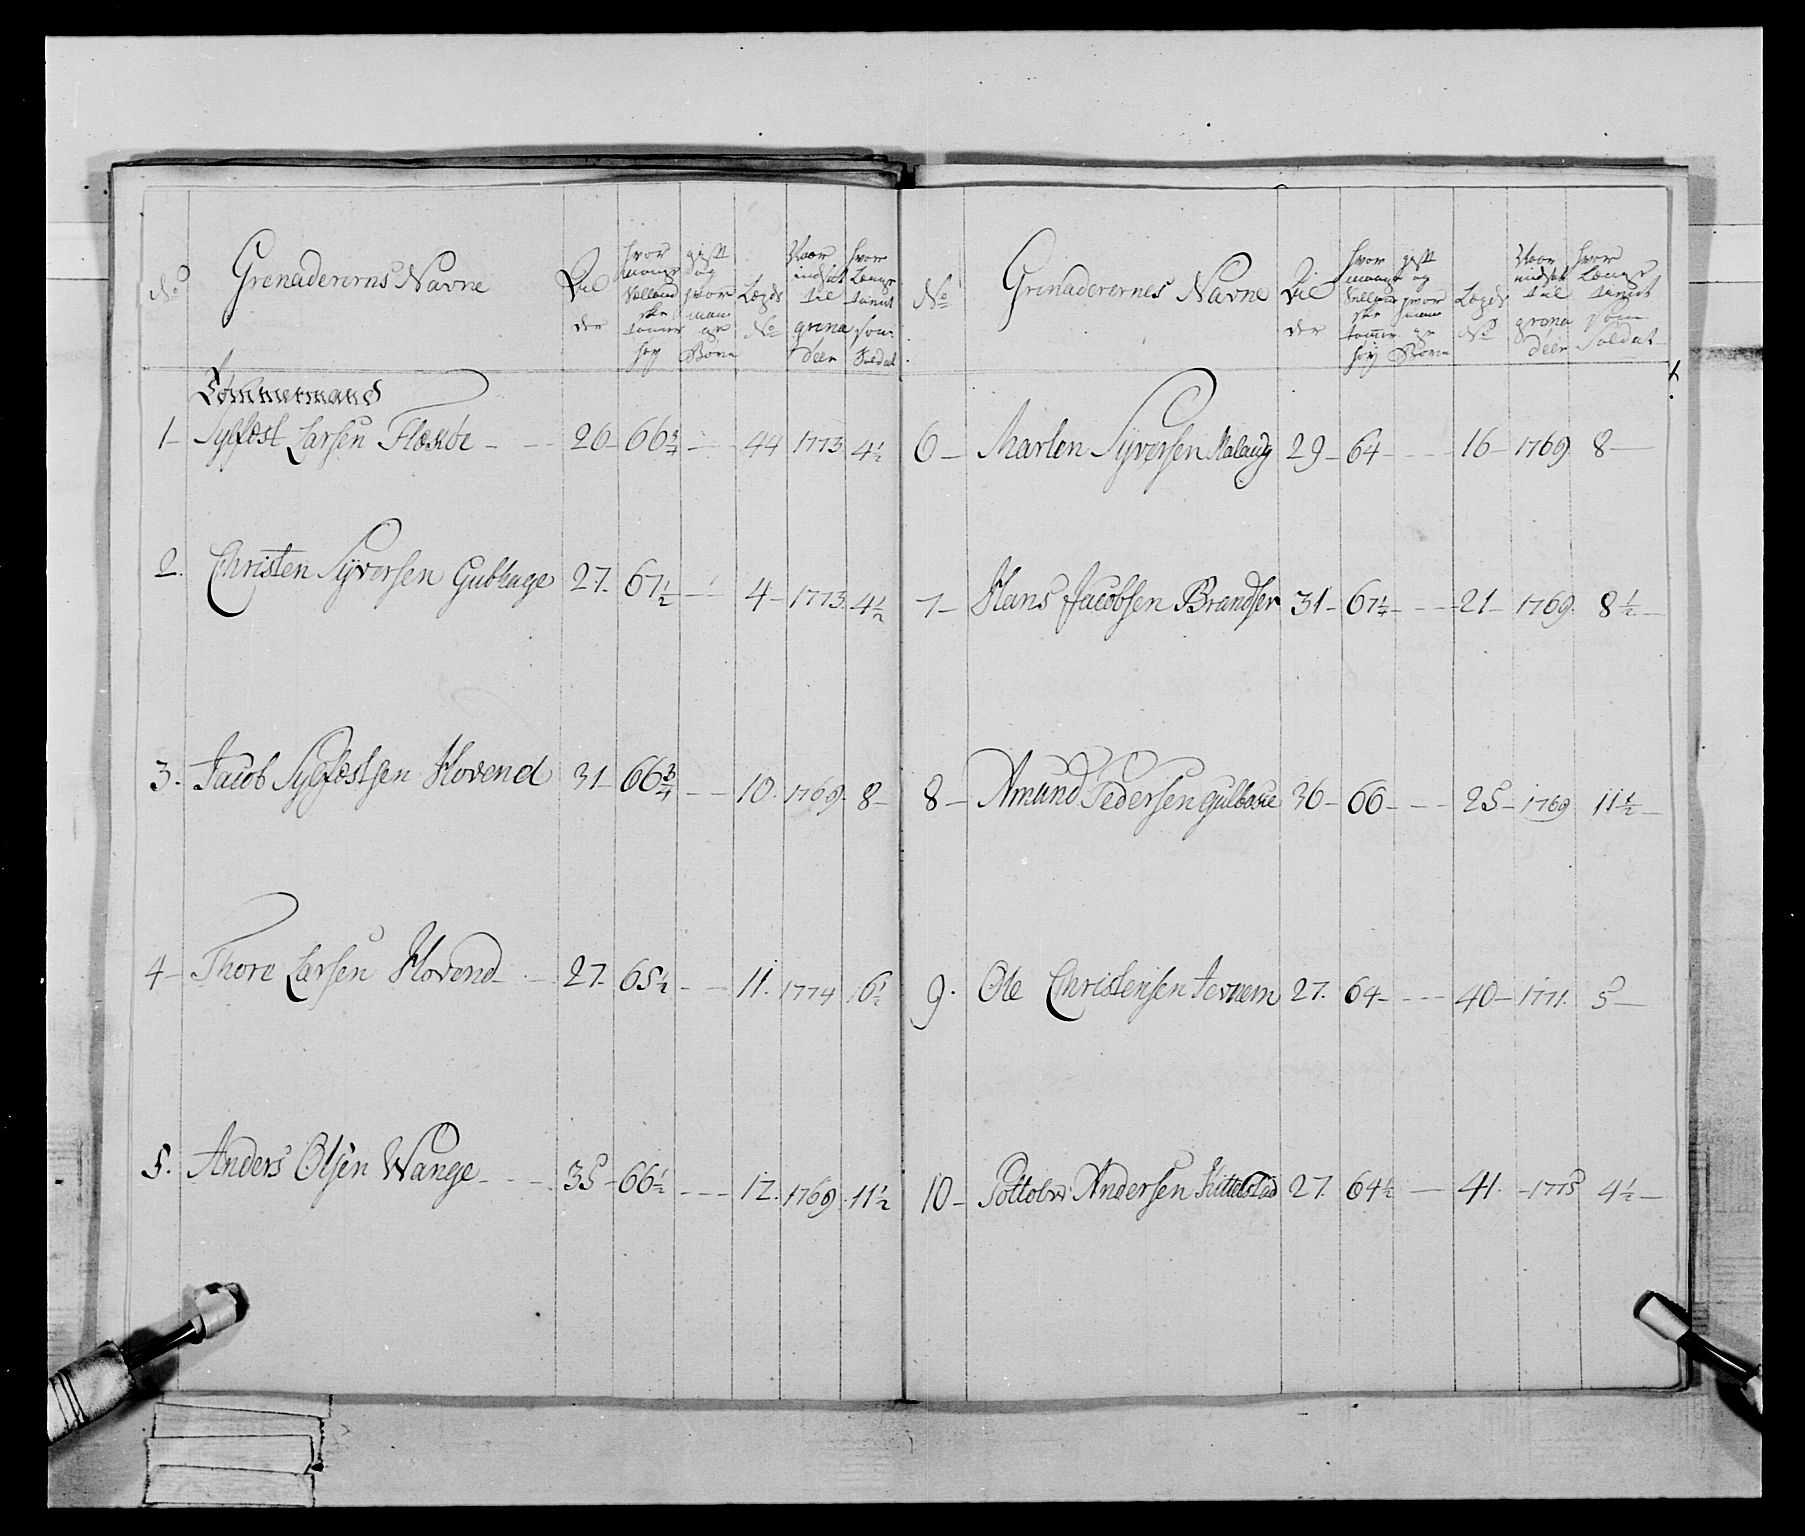 No
Grenaderernes Navne
Al
der
hvor
mange
Selland
ske
tomer
høy
gift
og
hvor
man
ge
Børn
Lægds
No
Naar
indsat
til
grena
deer
hvor
Længe
tient
som
Soldat
Tømmermand
1 Sylfest Larsen 26 66 3/4 44 1773 4 1/2
2. Christen Syversen 27. 67 1/2 4 1773 4 1/2
3. Jacob Sylfestsen Hovend 31 66 3/4 10. 1769 8
4 Thore Larsen Hovend 27. 65 1/2 11. 1774 6 1/2
5. Anders Olsen Wange 35 66 1/2 12. 1769 11 1/2
No
Grenaderernes Navne
Al
der
hvor
mange
Sellan
ske
tomer
høy
gift
og
hvor
mange
Børn
Lægds
No
Naar
indsat
til
grena
deer
hvor
Længe
tient
som
Soldat
6 Marten Syversen 29 64 16 1769 8
7 Hans Jacobsen Brandser 31 67 1/4 21 1769. 8 1/2
8 Amund Pedersen 36 66 25 1769 11 1/2
9. Ole Christensen 27. 64 40 1771. 5
10 Andersen Kittelstad 27. 64 1/2 41. 1775 4 1/2